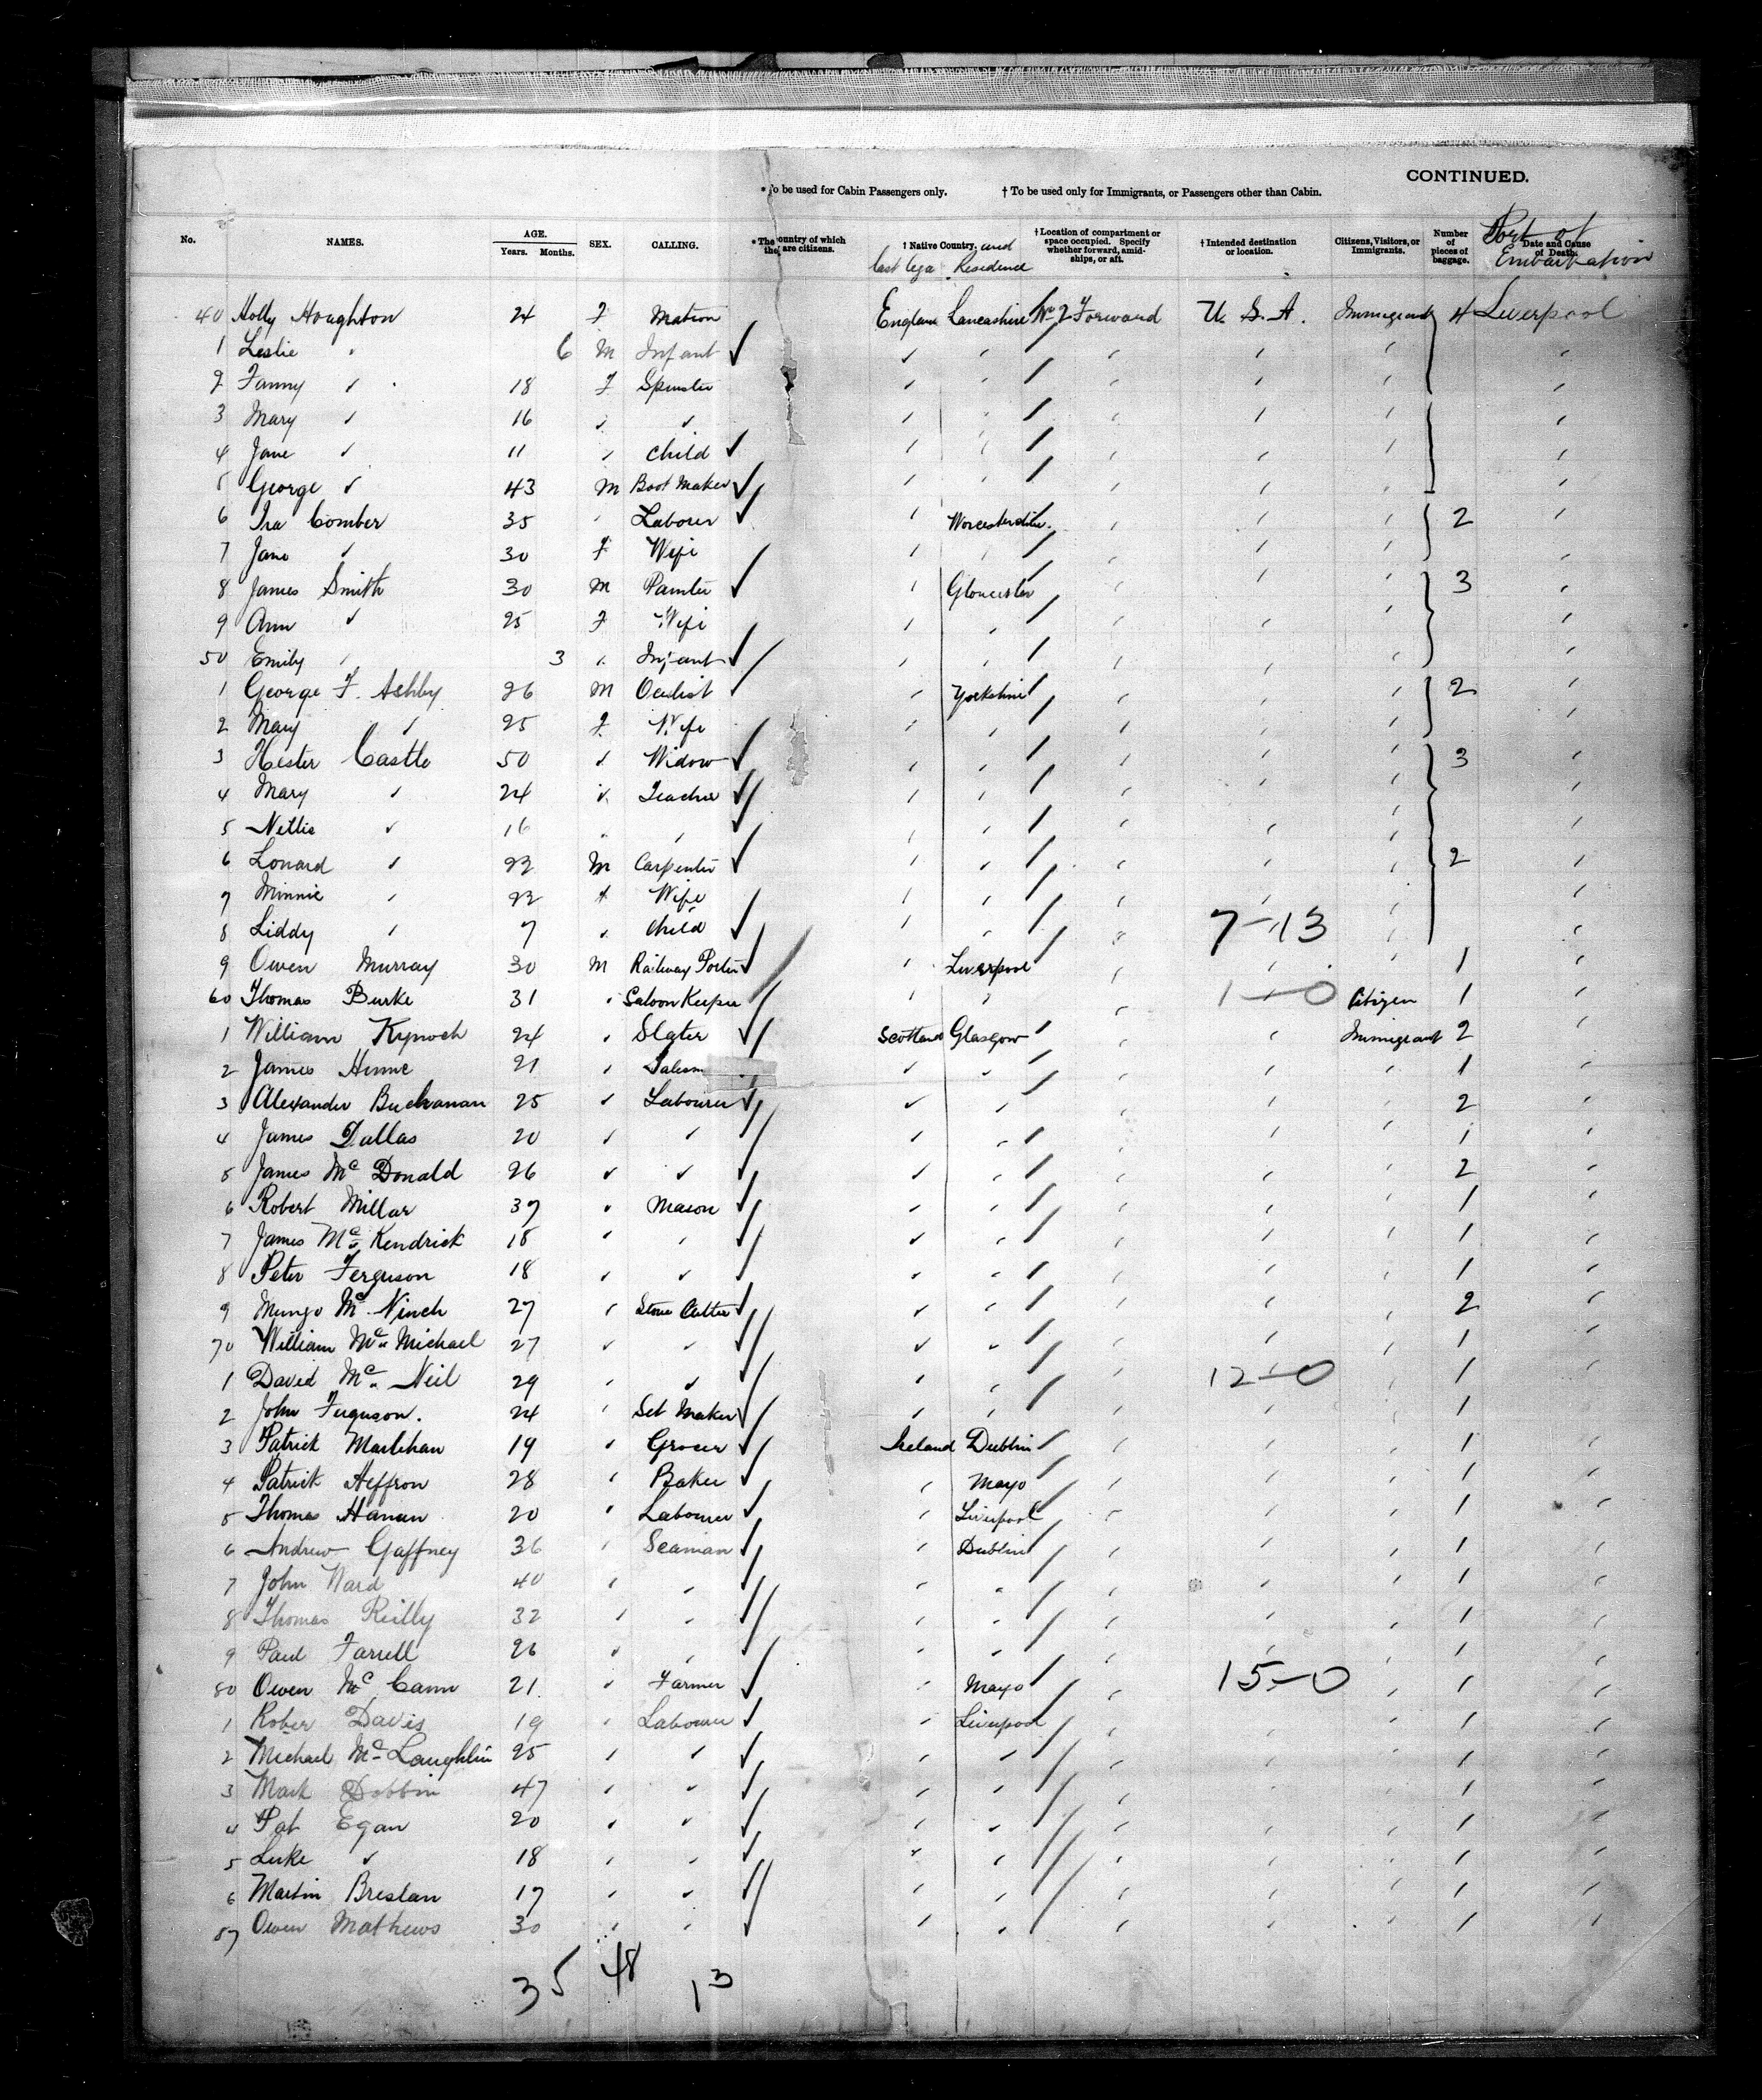 CONTINUED.
* To be used for Cabin Passengers only. † To be used only for Immigrants, or Passengers other than Cabin.
No. NAMES. AGE. Years. Months. SEX. CALLING. * The country of which they are citizens. † Native Country. and last lega Residence † Location of compartment or space occupied. Specify whether forward, amidships, or aft. † Intended destination or location. Citizens, Visitors, or Immigrants. Number of pieces of baggage. Date and Cause of Death. Port of Embarkation
40 Holly Houghton 24 F Matron England Lancashire No 2 Forward U. S. A. Immigrant 4 Liverpool
1 Leslie " 6 M Infant ✓ " " " " " "
2 Fanny " 18 F Spinster " " " " " "
3 Mary " 16 " " " " " " " "
4 Jane " 11 " Child ✓ " " " " " "
5 George " 43 M Boot Maker ✓ " " " " " "
6 Ira Comber 35 " Laborer ✓ " Worcestershire " " " 2 "
7 Jane " 30 F Wife " " " " " "
8 James Smith 30 M Painter ✓ " Gloucester " " " 3 "
9 Ann " 25 F Wife " " " " " "
50 Emily " 3 " Infant ✓ " " " " " "
1 George F. Ashby 26 M Oculist ✓ " Yorkshire " " " 2 "
2 Mary " 25 F Wife " " " " " "
3 Hester Castle 50 " Widow ✓ " " " " " 3 "
4 Mary " 24 " Teacher ✓ " " " " " "
5 Nettie " 16 " " ✓ " " " " " "
6 Lonard " 22 M Carpenter ✓ " " " " " 2 "
7 Minnie " 22 F Wife " " " " " "
8 Liddy " 7 " Child ✓ " " " 7-13 " "
9 Owen Murray 30 M Railway Porter ✓ " Liverpool " " " 1 "
60 Thomas Burke 31 " Saloon Keeper " " " 1-0 Citizen 1 "
1 William Kynoch 24 " Slater ✓ Scotland Glasgow " " Immigrant 2 "
2 James Hume 21 " Salesm " " " " " 1 "
3 Alexander Buchanan 25 " Labourer ✓ " " " " " 2 "
4 James Dallas 20 " " ✓ " " " " " 1 "
5 James Mc Donald 26 " " ✓ " " " " " 2 "
6 Robert Millar 37 " Mason ✓ " " " " " 1 "
7 James Mc Kendrick 18 " " ✓ " " " " " 1 "
8 Peter Ferguson 18 " " ✓ " " " " " 1 "
9 Mungo Mc Ninch 27 " Stone Cutter ✓ " " " " " 2 "
70 William Mc Michael 27 " " ✓ " " " " " 1 "
1 David Mc Neil 29 " " ✓ " " " 12-0 " 1 "
2 John Ferguson. 24 " Set Maker ✓ " " " " " 1 "
3 Patrick 19 " Grocer ✓ Ireland Dublin " " " 1 "
4 Patrick Heffron 28 " Baker ✓ " Mayo " " " 1 "
5 Thomas Hanan 20 " Labourer ✓ " Liverpool " " " 1 "
6 Andrew Gaffney 36 " Seaman ✓ " Dublin " " " 1 "
7 John Ward 40 " " ✓ " " " " " 1 "
8 Thomas Reilly 32 " " ✓ " " " " " 1 "
9 Paul Farrell 26 " " ✓ " " " " " 1 "
80 Owen Mc Cann 21 " Farmer ✓ " Mayo " 15-0 " 1 "
1 Rober Davis 19 " Labourer ✓ " Liverpool " " " 1 "
2 Michael Mc Laughlin 25 " " ✓ " " " " " 1 "
3 Mark Dobbin 47 " " ✓ " " " " " 1 "
4 Pat Egan 20 " " ✓ " " " " " 1 "
5 Luke " 18 " " ✓ " " " " " 1 "
6 Martin Breslan 17 " " ✓ " " " " " 1 "
87 Owen Mathews 30 " " ✓ " " " " " 1 "
35 48 13